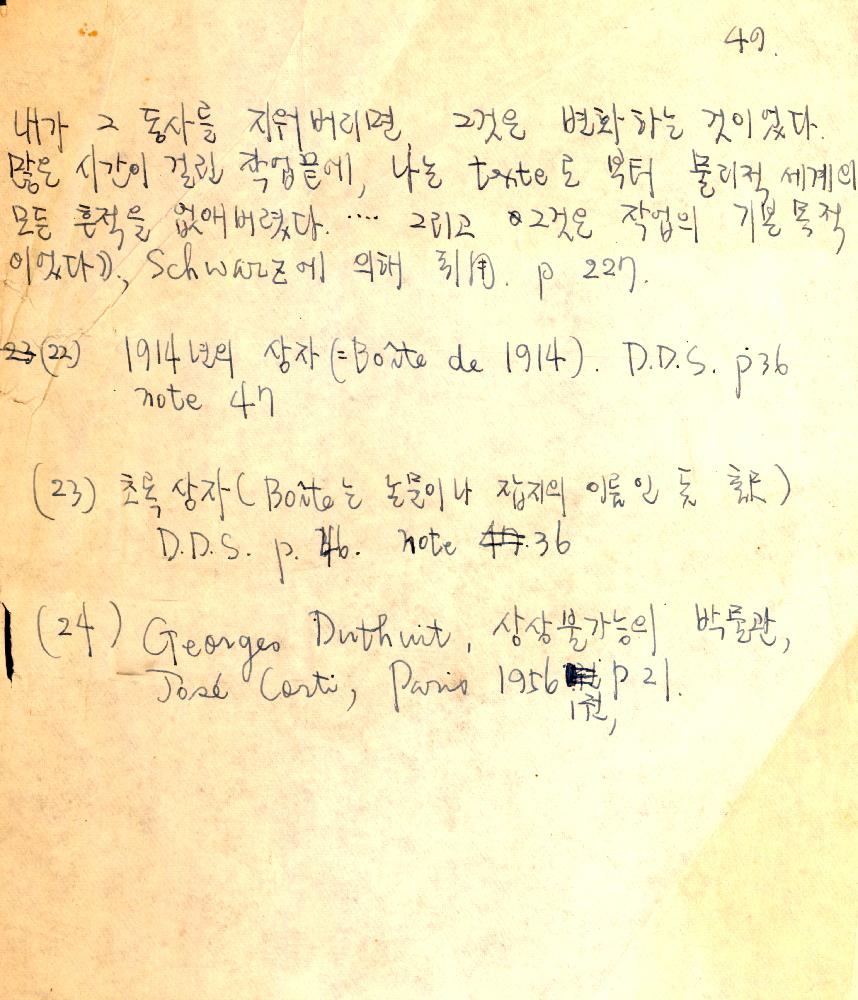 49.
내가 그 동사를 지워버리면, 그것은 변화하는 것이었다.
많은 시간이 걸린 작업끝에, 나는 texte로 부터 물리적 세계의
모든 흔적을 없애버렸다. .... 그리고 그것은 작업의 기본목적
이었다》, Schwarz에 의해 引用. p 227.
23 (22) 1914년의 상자 (=Boîte de 1914). D.D.S. p36
note 47
(23) 초록 상자 (Boîte는 논문이나 잡지의 이름인 듯 訳)
D.D.S. p. 46. note 36
(24) Georges Duthuit, 상상불가능의 박물관,
José Corti, Paris 1956 p 21.
1권,